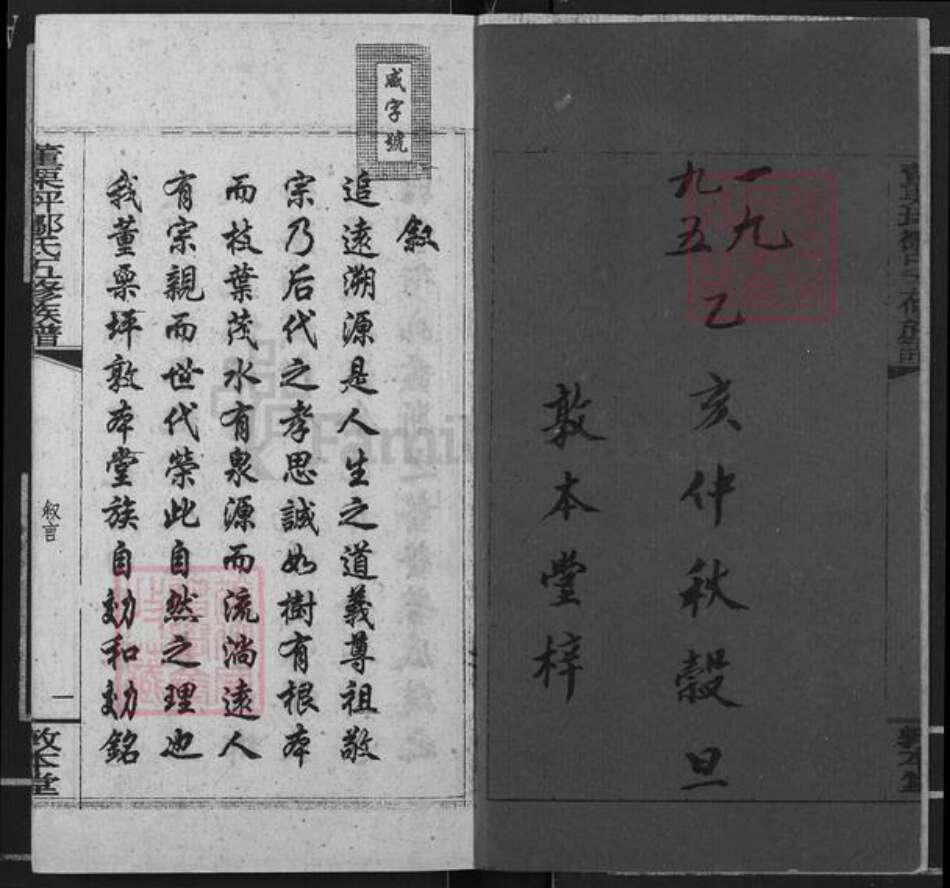 一九
九五
乙亥仲秋穀旦
敦本堂梓
咸字號
敘
追遠溯源是人生之道義尊祖敬
宗乃后代之孝思誠如樹有根本
而枝葉茂水有泉源而流淌遠人
有宗親而世代榮此自然之理也
我董粟坪敦本堂族自勍和勍銘
董粟坪鄒氏五修族譜
敘言
一
敦本堂